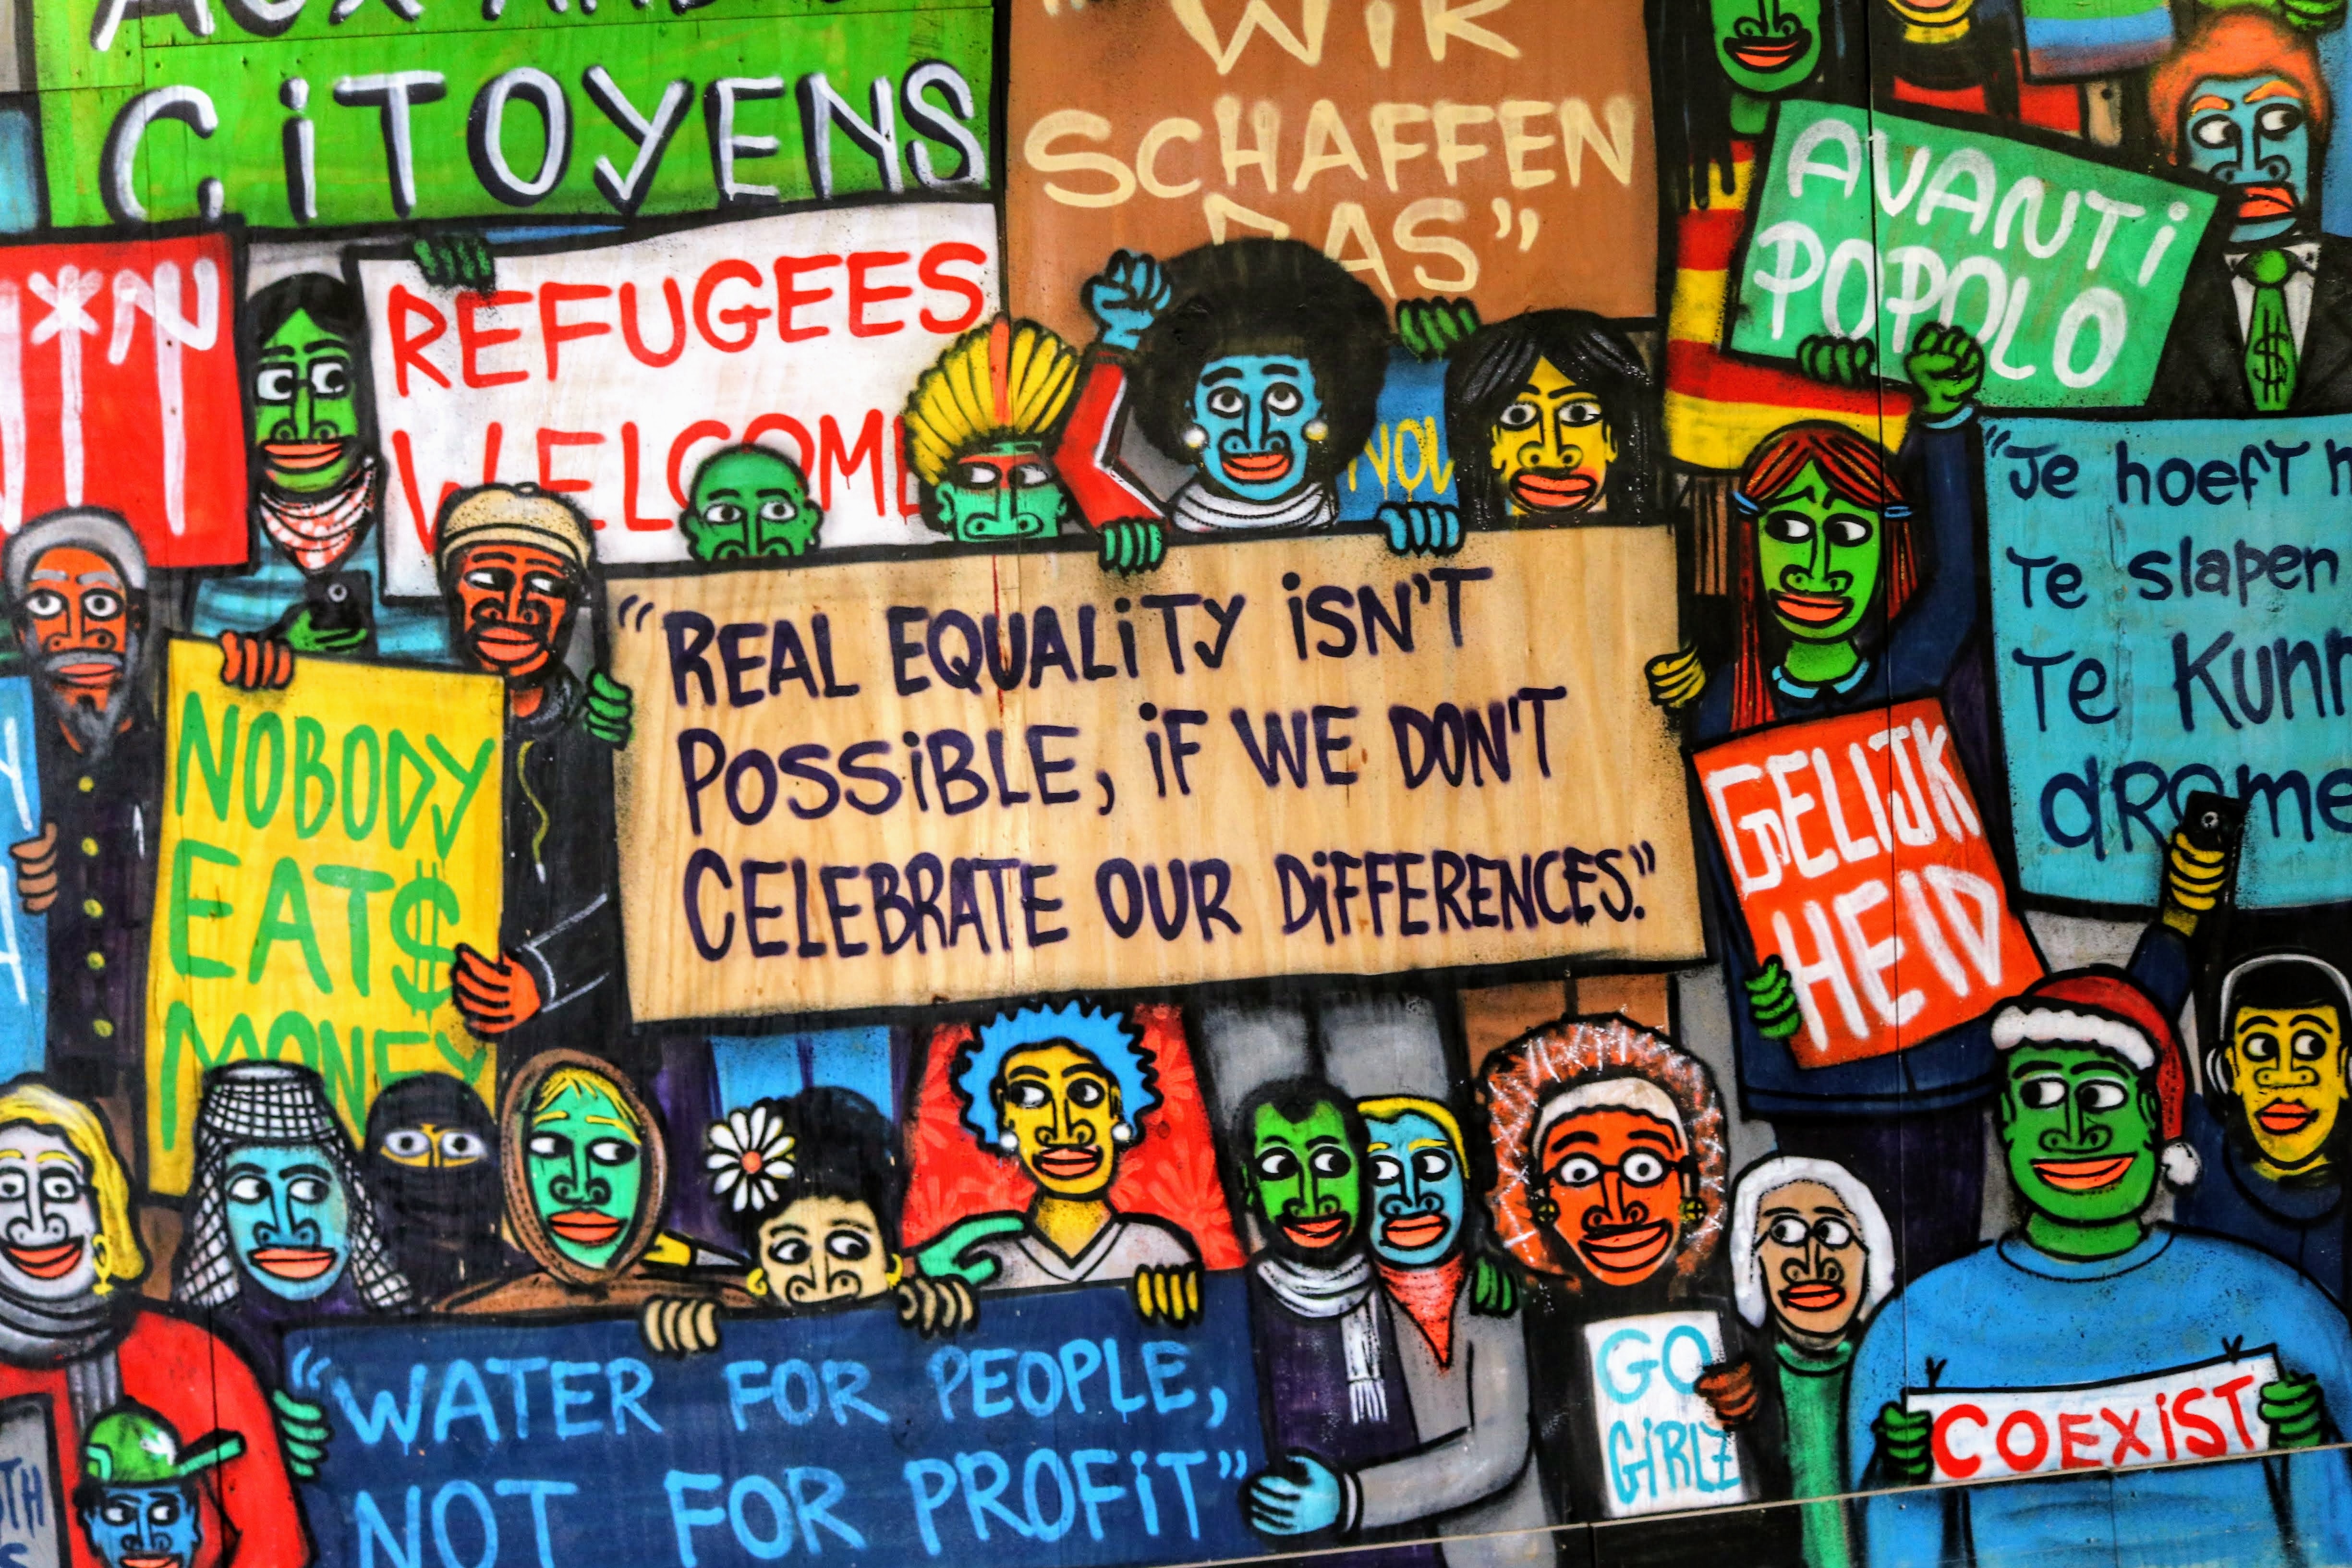 CiTOYENS
"WiR
SCHAFFEN
DAS"
AVANTi
POPOLO
REFUGEES
WELCOME
"Je hoeft
Te slapen
Te
"REAL EQUALiTY iSN'T
POSSiBLE, iF WE DON'T
CELEBRATE OUR DiFFERENCES."
NOBODY
EAT$
MONEY
GELIJK
HEID
"WATER FOR PEOPLE,
NOT FOR PROFiT"
GO
GiRLZ
COEXiST